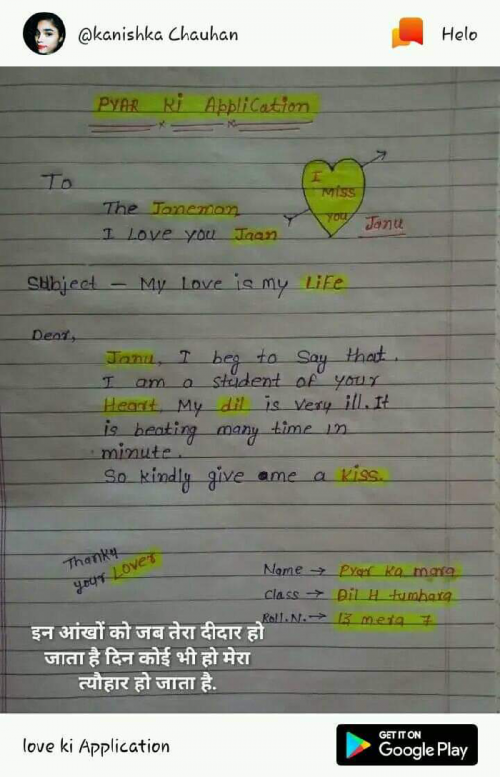 @kanishka Chauhan
Helo
PYAR Ki Application
To
The Janeman
I Love you Jaan
I
Miss
You
Janu
Subject – My Love is my LiFe
Dear,
Janu, I beg to Say that.
I am a student of your
Heart. My dil is very ill. It
is beating many time in
minute.
So kindly give me a Kiss.
Thanky
your Lover
Name → Pyar ka mara
Class → Dil H tumhara
Roll.N. → 13 mera 7
इन आंखों को जब तेरा दीदार हो
जाता है दिन कोई भी हो मेरा
त्यौहार हो जाता है.
love ki Application
GET IT ON
Google Play